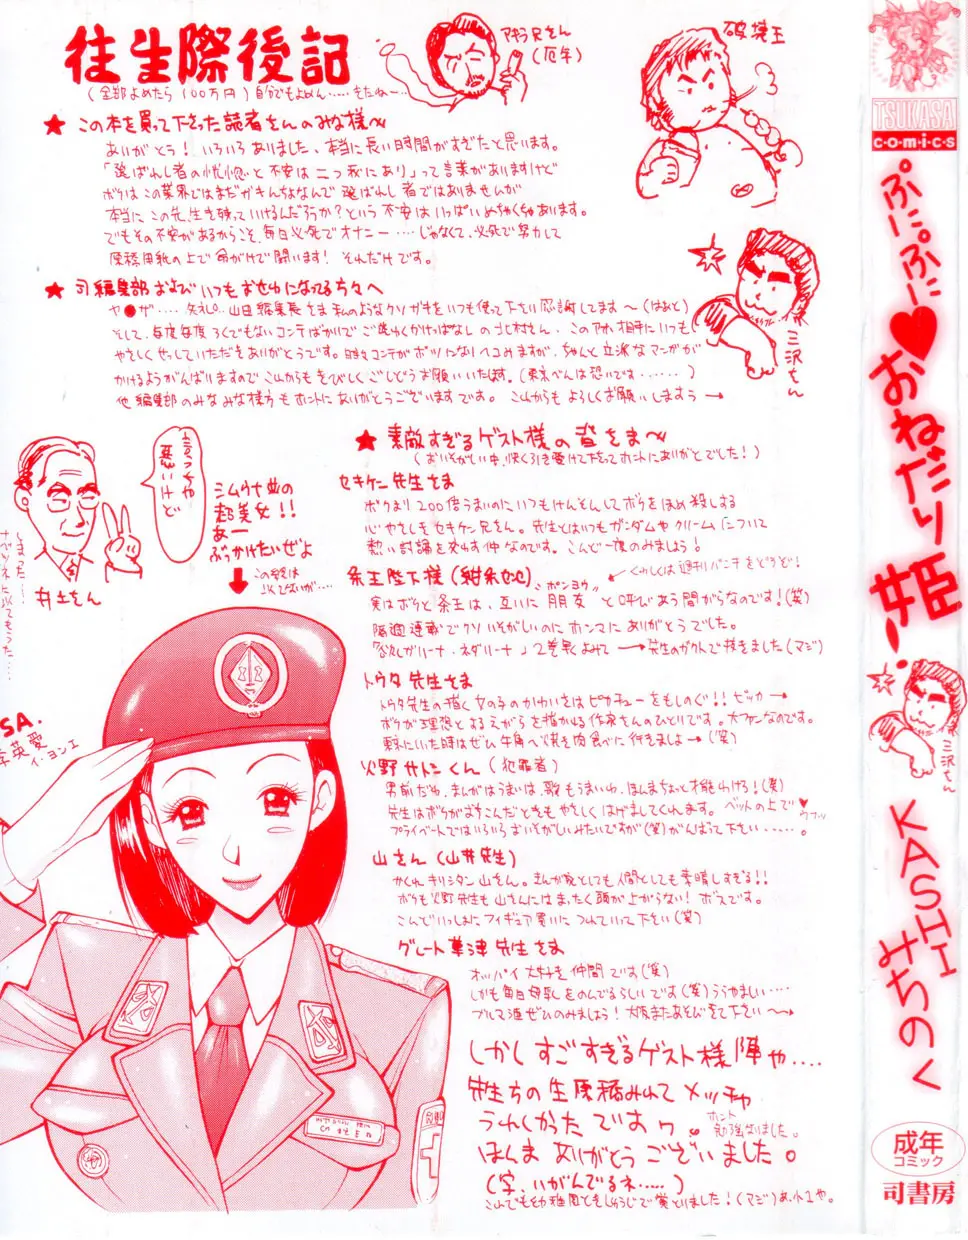 往生際後記
(全部よめたら100万円) 自分でもよめん‥‥きたねー‥
アキラ兄さん
(厄年)
破壊王
★ この本を買って下さった読者さんのみな様へ
ありがとう! いろいろありました、本当に長い時間がすぎたと思います。
「選ばれし者の恍惚と不安は二つ我にあり」って言葉がありますけど
ボクはこの業界ではまだガキんちょなんで選ばれし者ではありませんが
本当にこの先、生き残っていけるんだろうか?という不安はいっぱいめちゃくちゃあります。
でもその不安があるからこそ、毎日必死でオナニー‥‥じゃなくて、必死で努力して
原稿用紙の上で命がけで闘います! それだけです。
★ 司編集部およびいつもおせわになってる方々へ
ヤ●ザ‥‥ 失礼、山田編集長さま まいどのようなクソガキをいつも使って下さい感謝してます〜(はあと)
そして、毎度毎度ろくでもないコンテばかりでご迷わくかけっぱなしの北村さん、このアホ相手にいつも
やさしくせっしていただきありがとうです。時々コンテがボツになりヘコみますが、ちゃんと立派なマンガが
かけるようがんばりますのでこれからもきびしくごしどうお願いいたします。(東京べんは恐いです‥‥‥)
他編集部のみなみな様方もホントにありがとうございますです。これからもよろしくお願いしますぅ→
三沢さん
★ 素敵すぎるゲスト様の皆さま〜
(おいそがしい中、快く引き受けて下さってホントにありがとでした!)
セキケン先生さま
ボクより200倍うまいのにいつもけんそんしてボクをほめ殺しする
心やさしきセキケン兄さん。先生とはいつもガンダムやクリームについて
熱い討論を交わす仲なのです。こんど一度のみましょう!
くわしくは週刊パンチをどうぞ!
条王陛下様(紺条セセ)
ポンヨウ
実はボクと条王は、互いに朋友と呼びあう間がらなのです!(笑)
隔週連載でクソいそがしいのにホンマにありがとうでした。
「欲しがリーナ・ネダリーナ」2巻早くよみて→先生のガクトで抜きました(マジ)
トウタ先生さま
トウタ先生の描く女の子のかわいさはピカチューをもしのぐ!! ピッカ→
ボクが理想とするえがらを描かれる作家さんのひとりです。大ファンなのです。
東京にいた時はぜひ牛角へ焼き肉食べに行きましょ→(笑)
火野サトシくん(犯罪者)
男前だわ、まんがはうまいは、歌もうまいわ、ほんまちょっと才能わけろ!(笑)
先生はボクがおちこんだときもやさしくはげましてくれます。ベットの上で♥
ウフッ
プライベートではいろいろおいそがしいみたいですが(笑)がんばって下さい‥‥。
山さん(山井先生)
かくれキリシタン山さん。まんが家としても人間としても素晴しすぎる!!
ボクも火野先生も山さんにはまったく頭が上がらない! ボスです。
こんどいっしょにフィギュア買いにつれていって下さい(笑)
グレート草津先生さま
オッパイ大好き仲間です(笑)
しかも毎日母乳をのんでるらしいです(笑)うらやましい‥‥
ブルマ酒ぜひのみましょう! 大阪またあそびきて下さい〜→
しかしすごすぎるゲスト様陣や‥‥
先生方の生原稿みれてメッチャ
うれしかったですぅ。
ホント
勉強なりました。
ほんまありがとうございました。
(字、いがんでるネ‥‥)
こんでも幼稚園ときしゅうじで賞とりました!(マジ)あ、小1や。
言っちゃ
悪いけど
井上さん
しまった‥‥
シムウナ並の
超美女!!
あー
ぶっかけたいぜよ
この絵は
JKでないが‥‥
SA.
李英愛
イ・ヨンエ
TSUKASA
comics
ぷにぷに♥おねだり姫
三沢さん
KASHIみちのく
成年
コミック
司書房